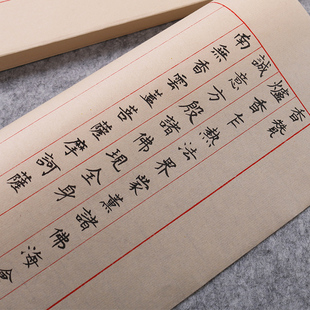 香讚
爐香乍熱法界蒙薰諸佛海會
誠意方殷諸佛現全身
南無香雲蓋菩薩摩訶薩